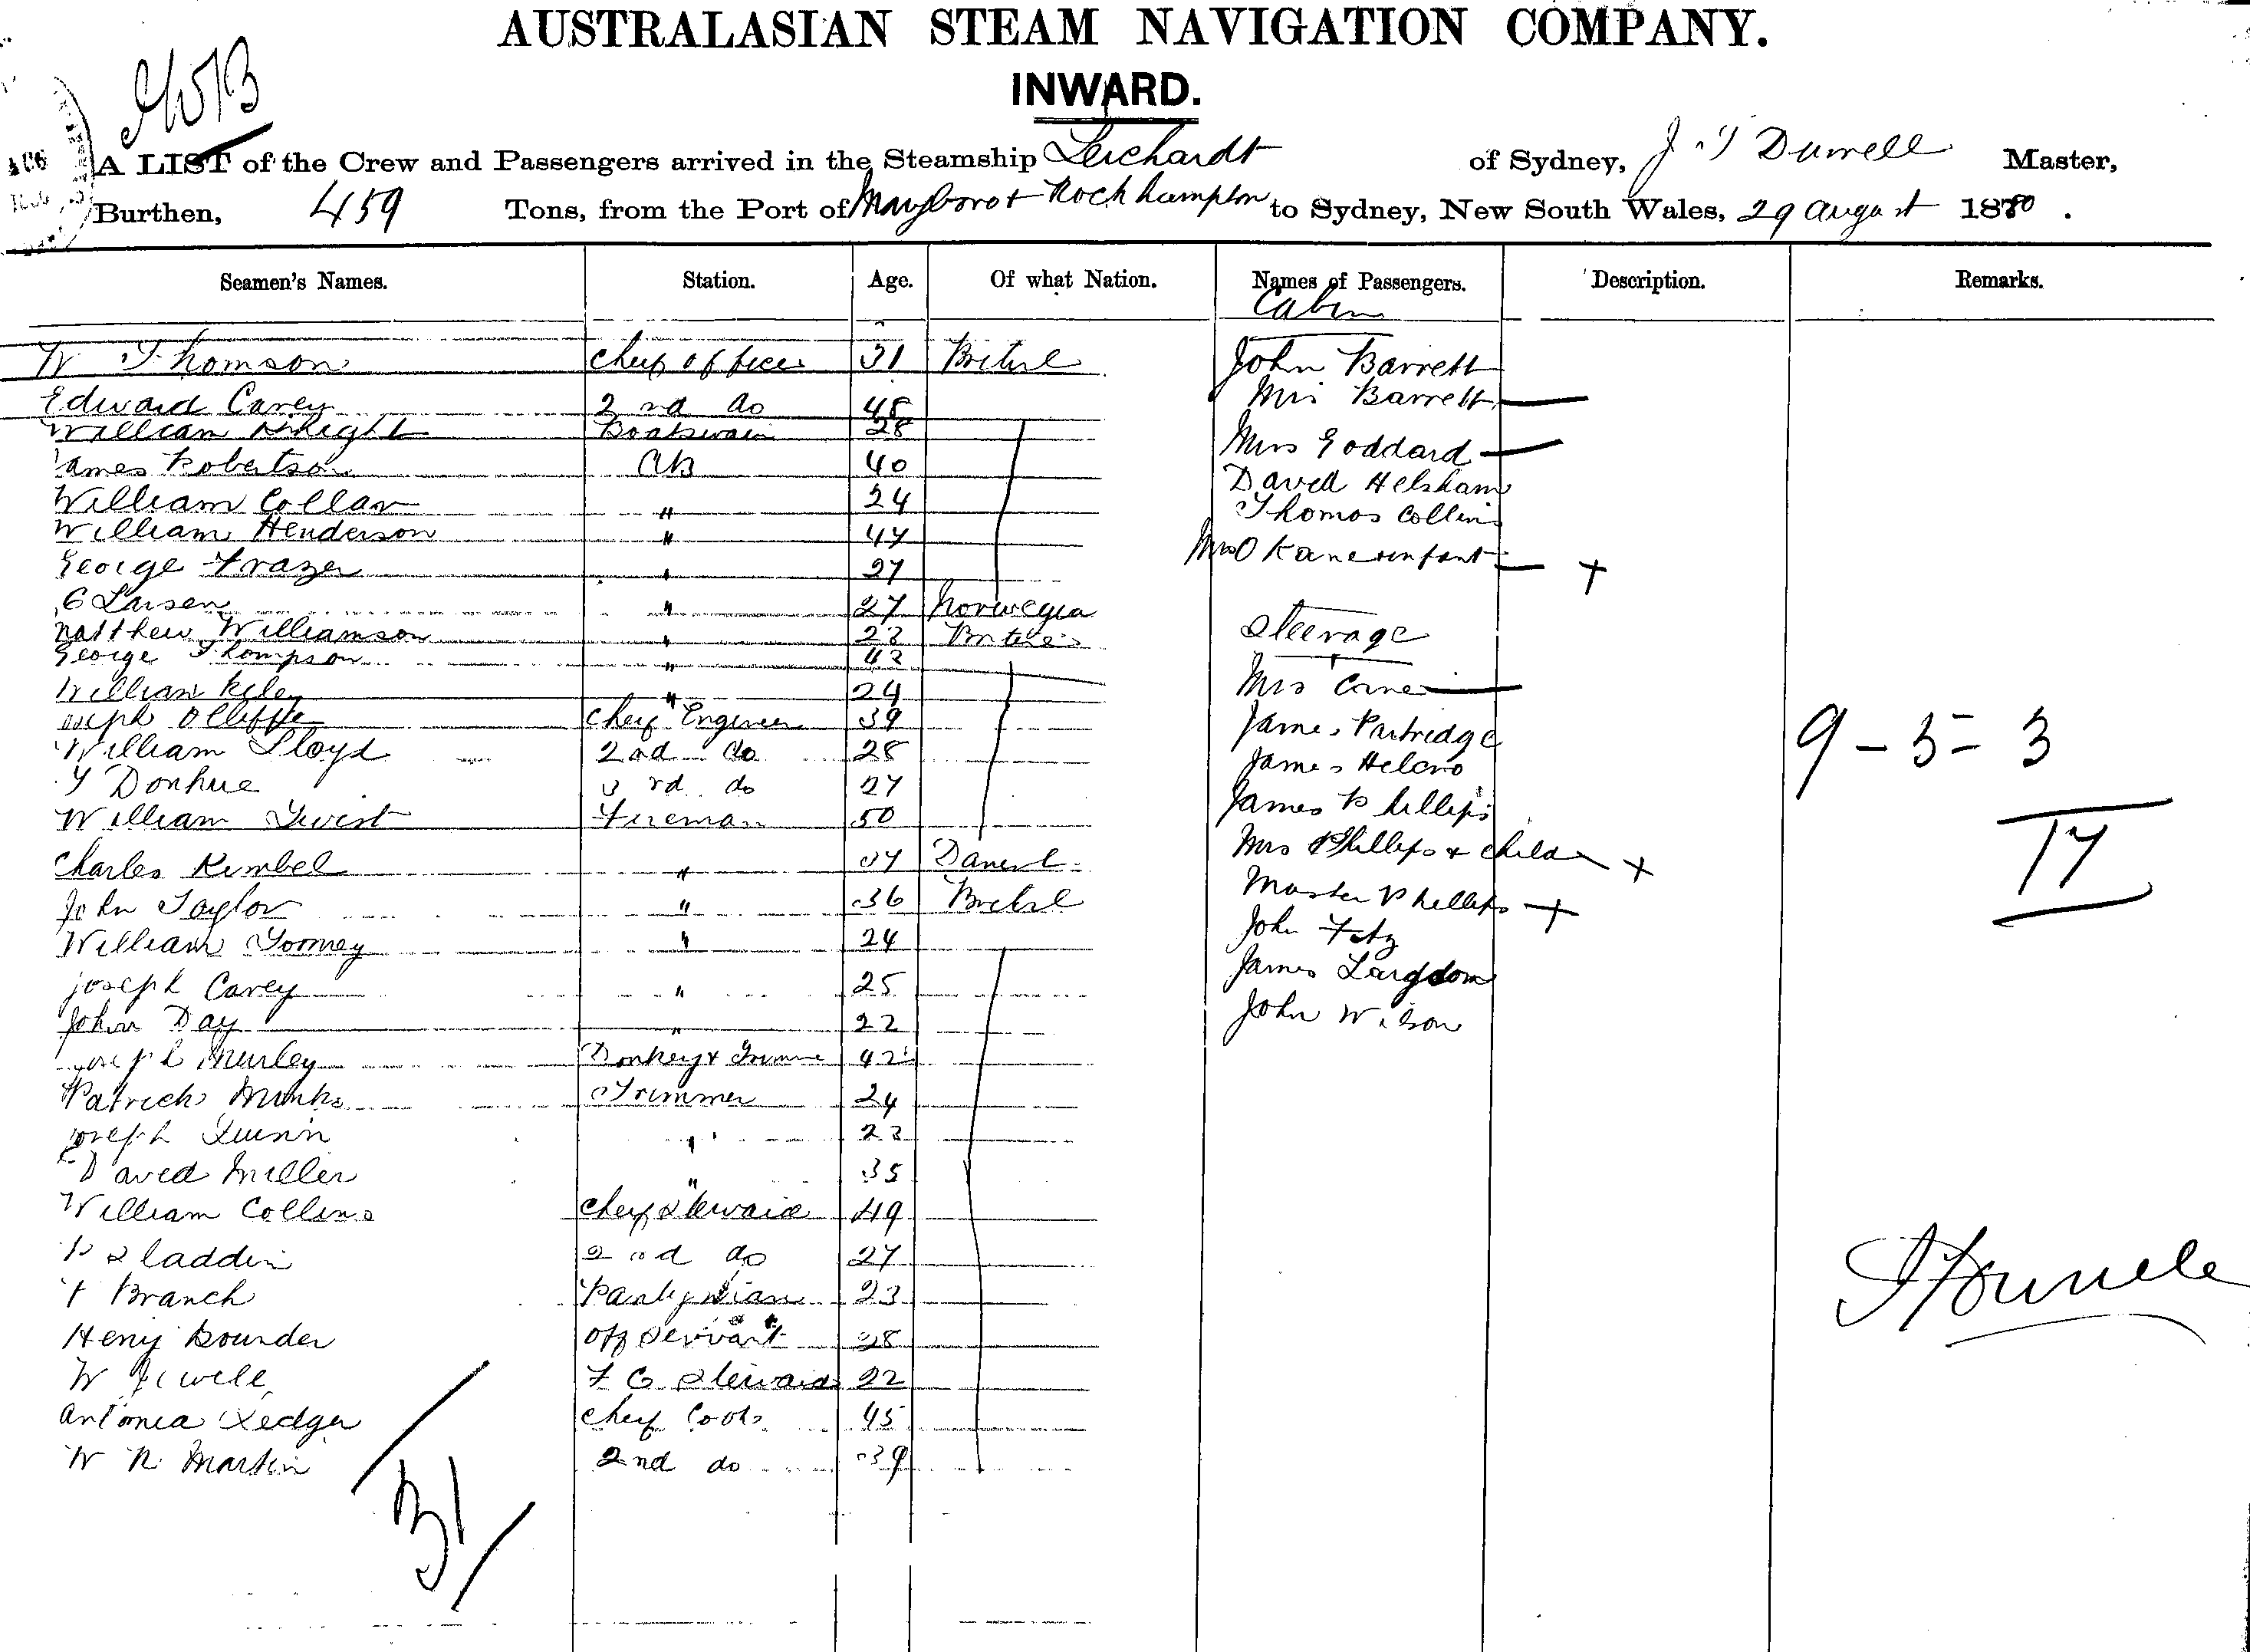 AUSTRALASIAN STEAM NAVIGATION COMPANY.
INWARD.
A LIST of the Crew and Passengers arrived in the Steamship Leichardt of Sydney, Master,
Burthen, 459 Tons, from the Port of Maryboro + Rockhampton to Sydney, New South Wales, 29 August 1880.
Seamen's Names. Station. Age. Of what Nation. Names of Passengers. Description. Remarks.
Cabin
W Thomson Chief Officer 31 British John Barrett
Edward Carey 2nd do 48 Mrs Barrett
William Knight Boatswain 28
James Robertson AB 40 Mrs Goddard
William Collar " 24 David Helsham
William Henderson " 44 Thomas Collins
George Frazer " 27 Mrs O Kane + infant +
C Larsen " 27 Norwegia
Matthew Williamson " 23 British Steerage
George Thompson " 42
William Riley " 24 Mrs Cane
Joseph Olliffe Chief Engineer 39 James Partridge 9 - 5 = 3
William Lloyd 2nd do 28 James
T Donhue 3rd do 27 James Phillips
William Twist Fireman 50 17
Charles Kimbel " 34 Danish Mrs Phillips + child +
John Taylor " 36 British Master Phillips +
William Toomey " 24 John Fitz
Joseph Carey " 25 James Langdon
John Day " 22 John Wilson
Joseph Murley Donkey + Trimmer 42
Patrick Minks Trimmer 24
Joseph Quinn " 23
David Miller " 35
William Collins Chief Steward 49
P Sladdin 2nd do 27
F Branch Pantryman 23
Henry Bounder Off Servant 28
W Jewell F C Steward 22
Antonia Ledger Chief Cook 45
W R Martin 2nd do 39
31